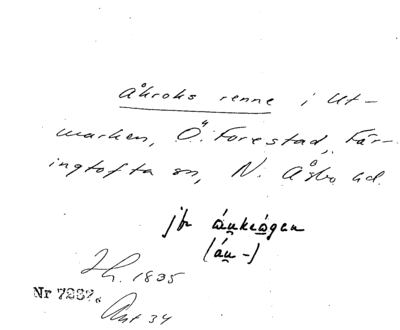 åkroks renne i Ut-
marken, Ö. Forestad, Fär-
ingtofta sn, N. Åsbo hd.
jfr
(áu̯-)
1835
Nr 7287.
Ant 34